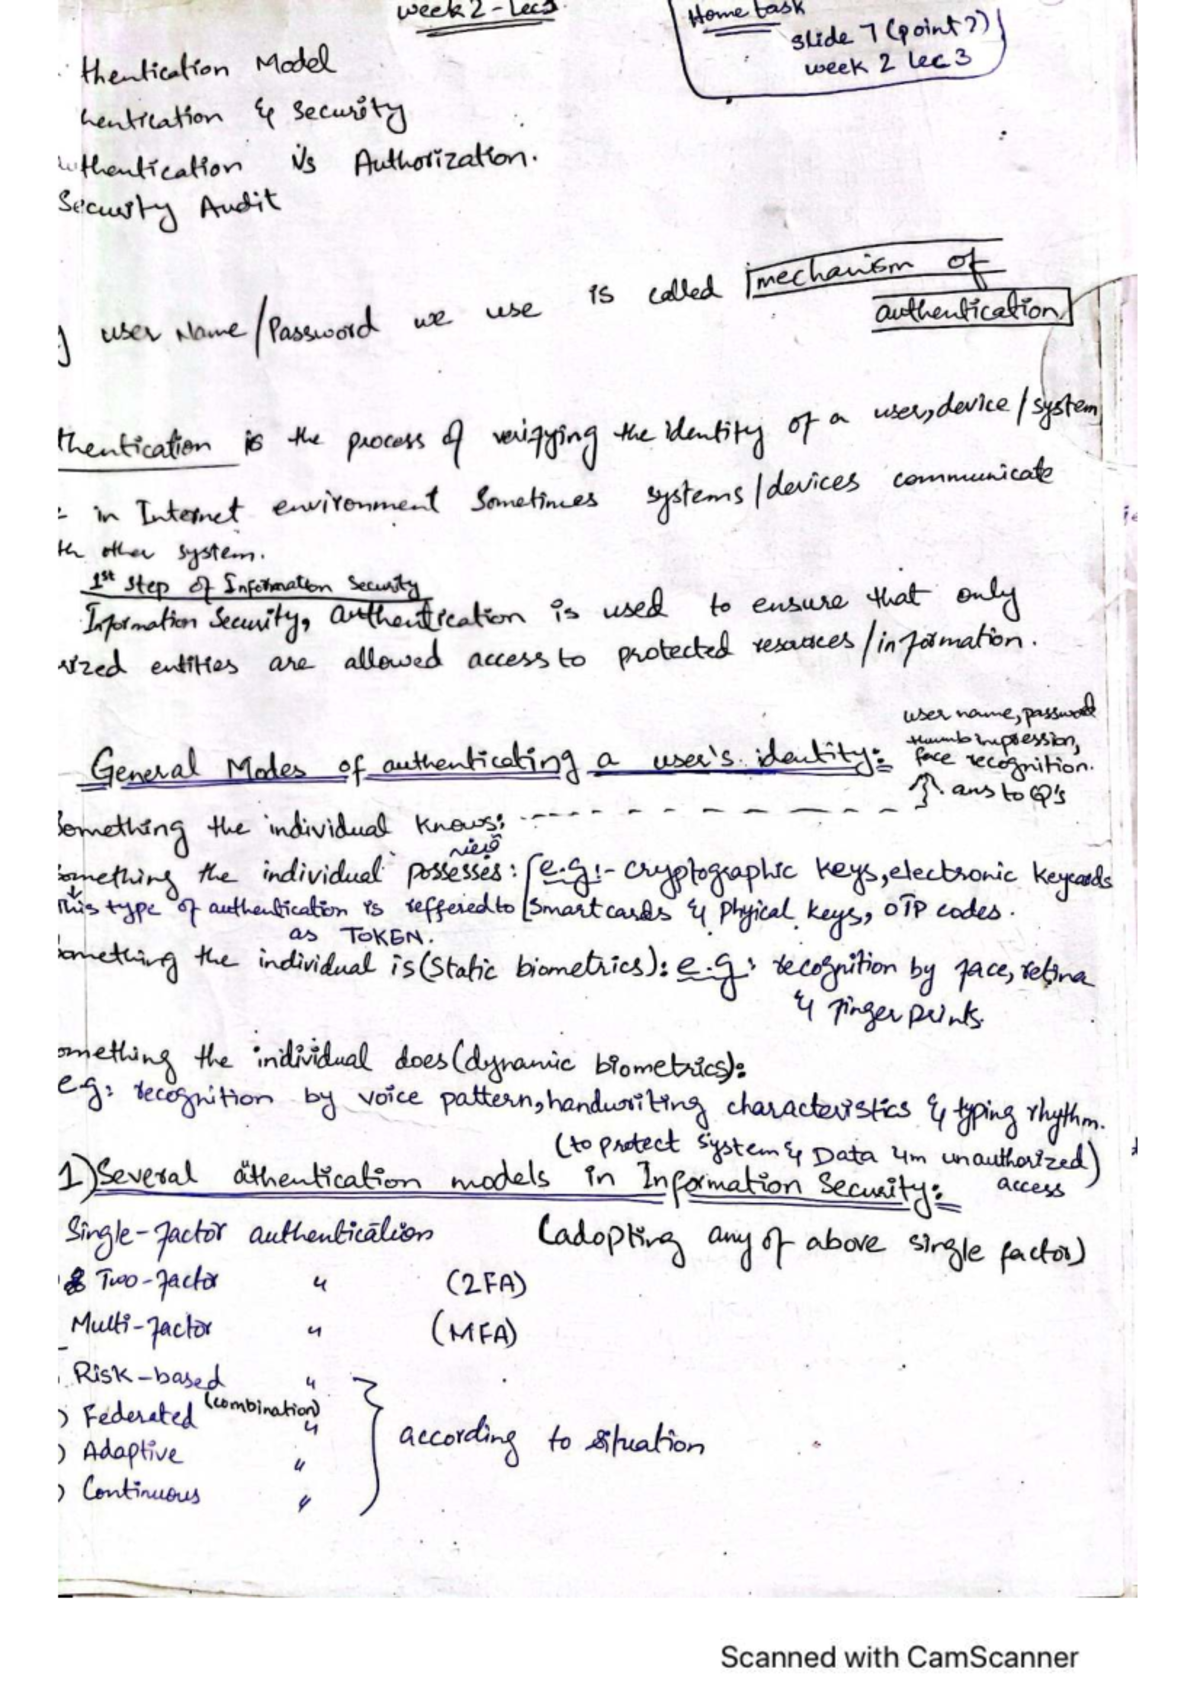 week 2 - Lec3
Home task
slide 7 (point ?)
week 2 lec 3
thentication Model
hentication & Security
uthentication v/s Authorization.
Security Audit
user Name/Password we use is called mechanism of
authentication
thentication is the process of verifying the identity of a user, device/system
in Internet environment Sometimes systems/devices communicate
th other system.
1st step of Information Security
Information Security, authentication is used to ensure that only
rized entities are allowed access to protected resources/information.
user name, password
thumb impression,
face recognition.
ans to Q's
General Modes of authenticating a user's identity:
Something the individual knows:
قبضہ
omething the individual possesses: e.g:- cryptographic keys, electronic keycards
This type of authentication is reffered to Smart cards & Phyical keys, OTP codes.
as TOKEN.
omething the individual is (Static biometrics): e.g: recognition by face, retina
& finger prints.
omething the individual does (dynamic biometrics):
e.g: recognition by voice pattern, handwriting characteristics & typing rhythm.
(to protect system & Data 4m unauthorized)
access
1) Several athentication models in Information Security:
Single-factor authentication (adopting any of above single factor)
Two-factor " (2FA)
Multi-factor " (MFA)
Risk-based "
) Federated (combination) "
according to situation
) Adaptive "
) Continuous "
Scanned with CamScanner